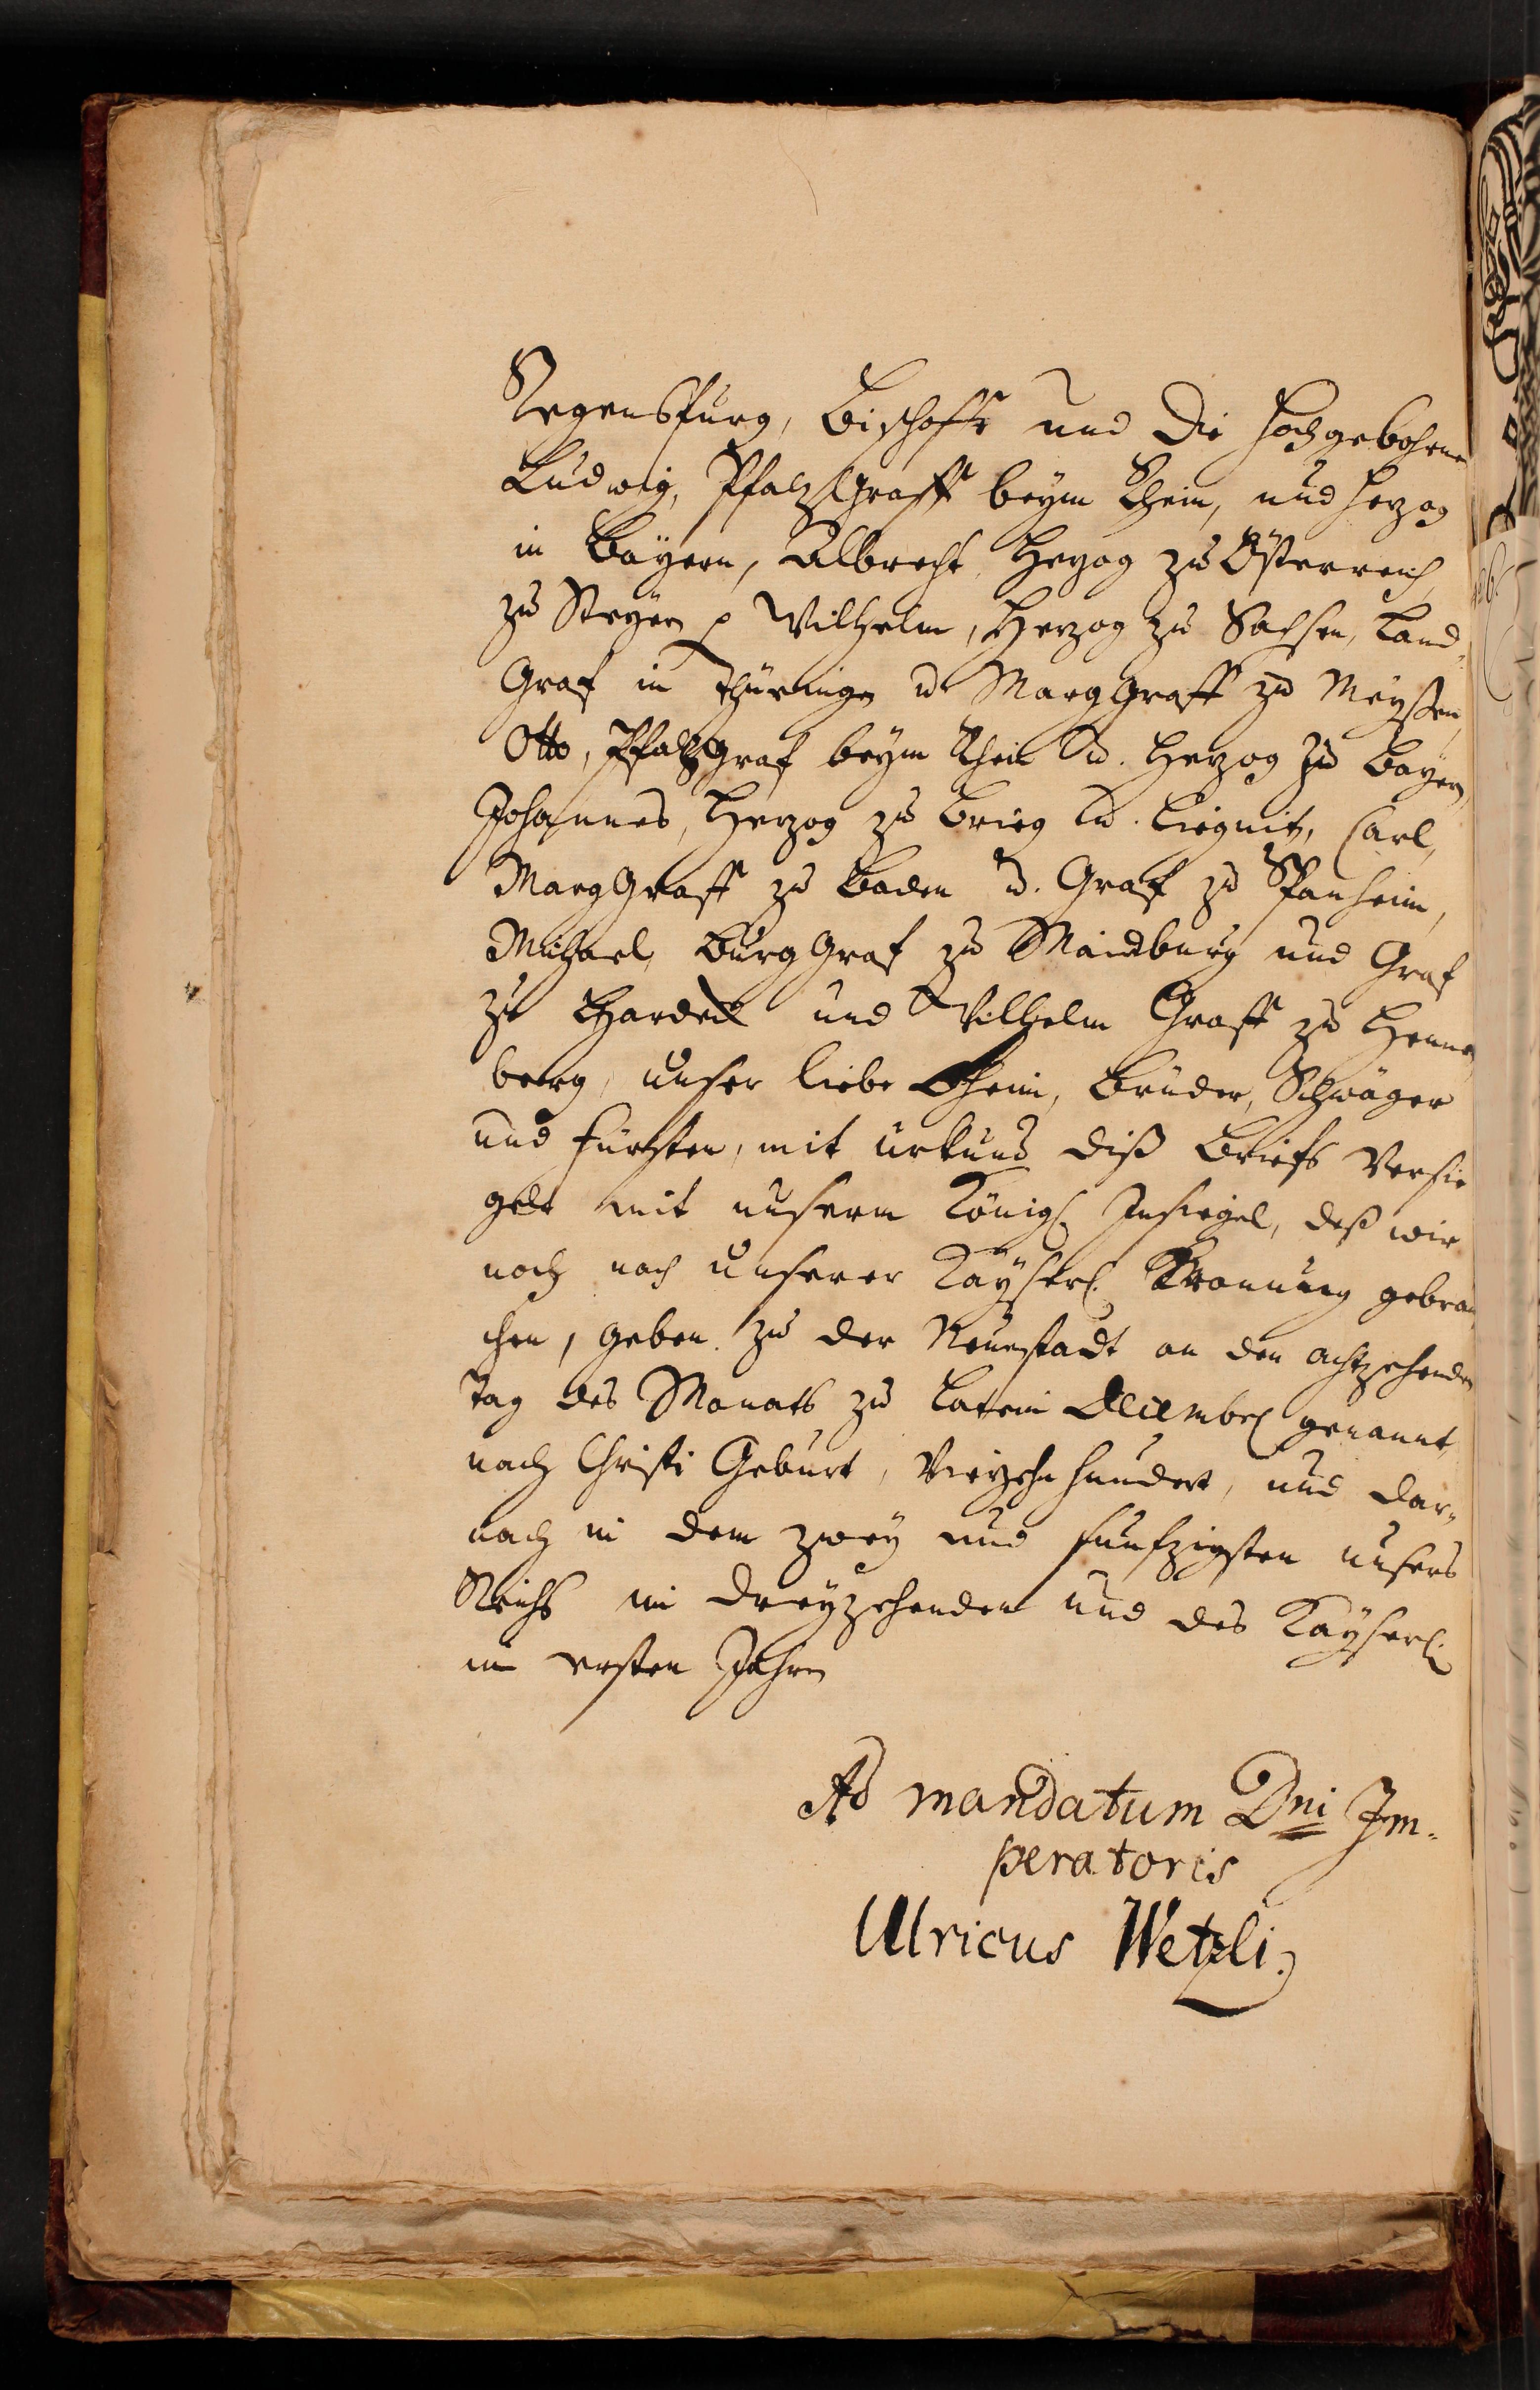 Regenspurg, Bischoffe und die hochgebohrne
Ludwig, Pfalzgraff beym Rhein, und Herzog
in Bayern, Albrecht, Herzog zu Österreich,
zu Steyer p Wilhelm, Herzog zu Sachsen, Land-
Graf in Thüringen u. Marggraff zu Meyssen,
Otto, Pfalzgraf beym Rhein u. Herzog zu Bayern,
Johannes, Herzog zu Brieg u. Liegnitz, Carl,
Marggraff zu Baden u. Graf zu Spanheim,
Michael, Burggraf zu Maidburg und Graf
zu Hardeck und Wilhelm Graff zu Henne
berg, unser liebe Oheim, Brüder, Schwäger
und Fürsten, mit urkund diß Briefs versie
gelt mit unserm Königl. Insiegel, deß wir
noch nach unserer Kayserl. Kronung gebrau
chen, geben zu der Neuestadt an den achtzehenden
tag des Monats zu Latein December genannt,
nach Christi Geburt, Vierzehnhundert, und dar-
nach in dem zwey und funfzigsten unsers
Reichs im dreyzehenden und des Kayserl.
im ersten Jahren
Ad mandatum Dni Im-
peratoris
Ulricus Wetzli.